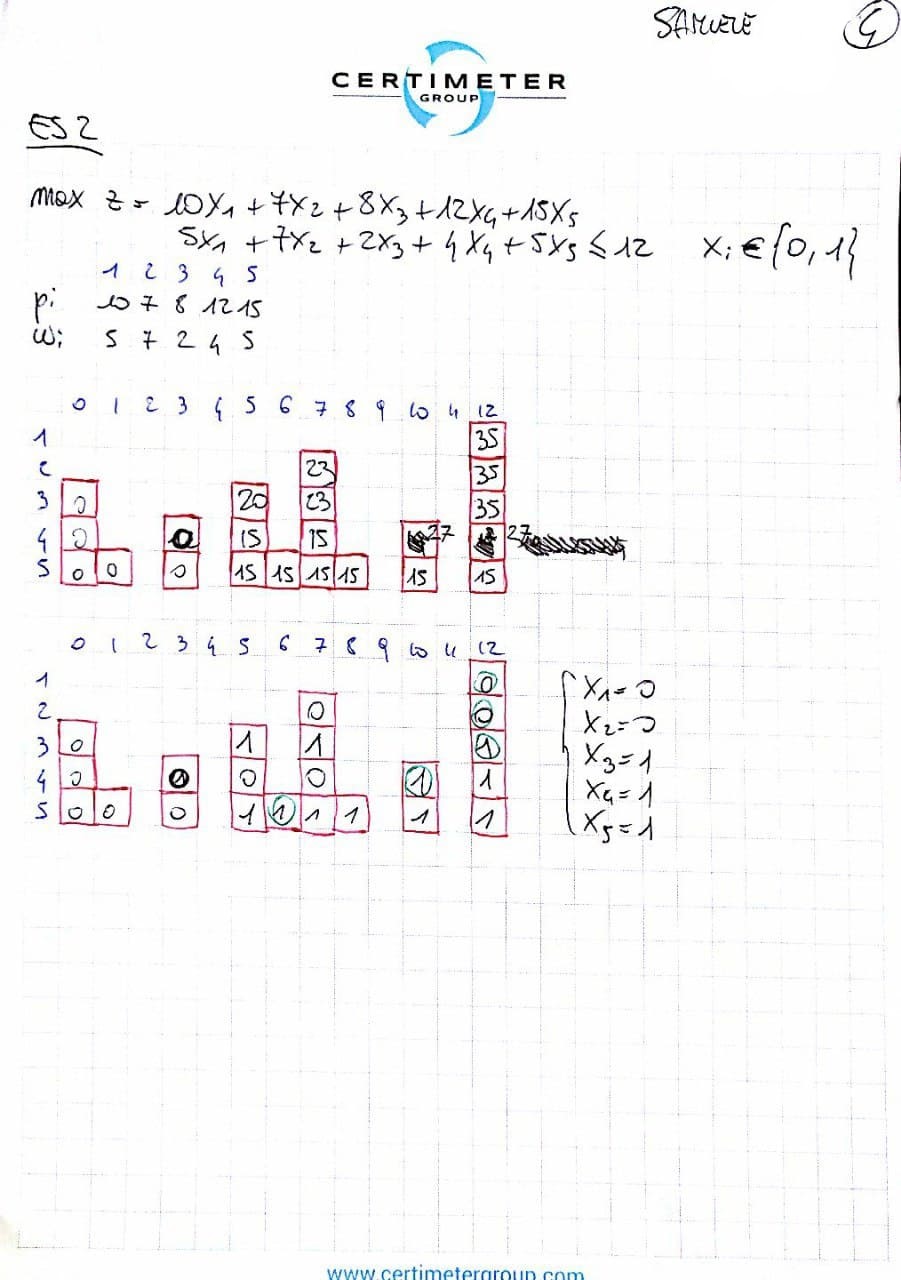 SAMUELE
CERTIMETER
GROUP
ES 2
max z = 10x1 + 7x2 + 8x3 + 12x4 + 15x5
5x1 + 7x2 + 2x3 + 4x4 + 5x5 ≤ 12 xi ∈ {0,1}
1 2 3 4 5
pi 10 7 8 12 15
wi 5 7 2 4 5
0 1 2 3 4 5 6 7 8 9 10 11 12
1 35
2 23 35
3 0 20 23 35
4 0 0 15 15 27 27
5 0 0 0 15 15 15 15 15 15
0 1 2 3 4 5 6 7 8 9 10 11 12
1 0 x1=0
2 0 0 x2=0
3 0 1 1 1 x3=1
4 0 0 0 0 1 1 x4=1
5 0 0 0 1 1 1 1 1 1 x5=1
www.certimetergroup.com